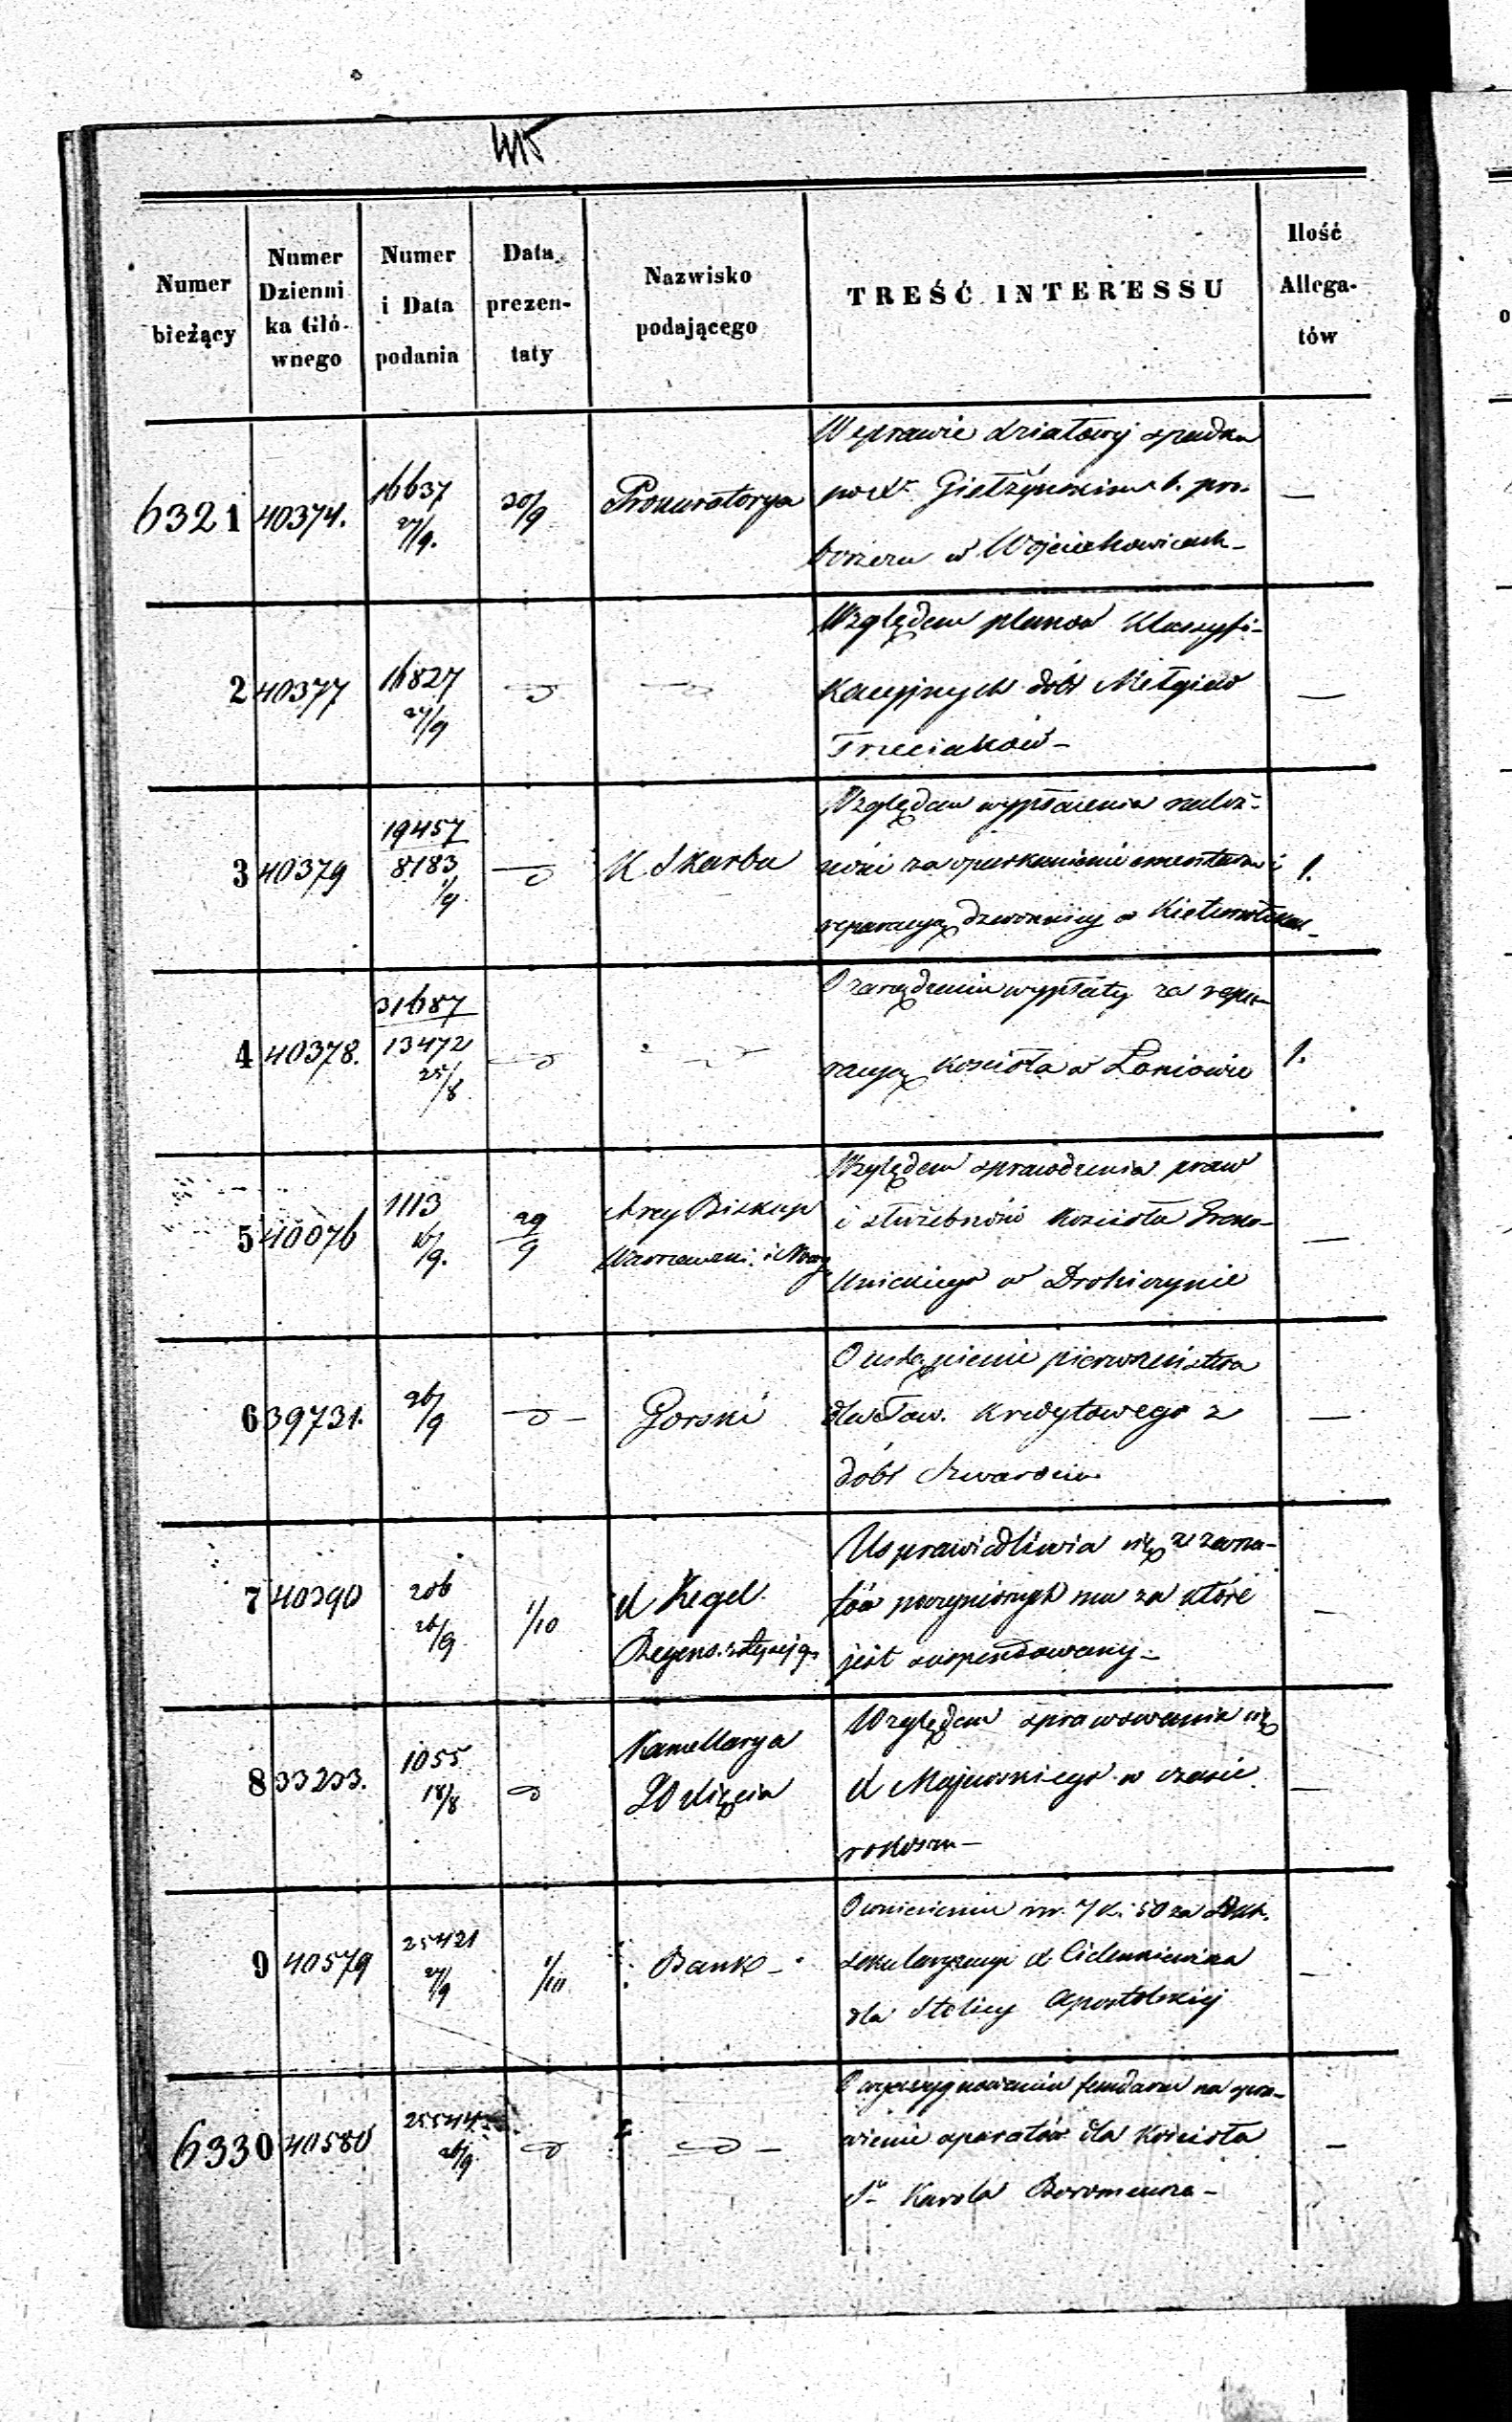 Numer bieżący
Numer Dzienni ka Głó- wnego
Numer i Data podania
Data prezen- taty
Nazwisko podającego
TREŚĆ INTERESSU
Ilość Allega- tów
6321 40374. 16637 27/9. 30/9 Prokuratorya
W sprawie działowej spadku
po X. Giełżyńskim b. pro-
boszczu w Wojciechowicach –
2 40377 16827 27/9
Względem planów Klassyfi-
kacyjnych dóbr Mełgiew
Trzeciaków –
3 40379 19457 8183 1/9 K Skarbu 1.
Względem wypłacenia należ-
ności za oparkanienie cmentarza i
reparacyą dzwonnicy w
4 40378. 31687 13472 25/8 1.
O zarządzenie wypłaty za repa-
racyą Kościoła w Łoniowie
5 40076 1113 16/9. 29/9 Arcy Biskup
Warszawski i
Względem sprawdzenia praw
i służebności Kościoła Greko-
Unickiego w Drohiczynie
6 39731. 26/9 Gorski
O ustąpienie pierwszeństwa
dla Tow. Kredytowego z
dóbr
7 40390 206 26/9 1/10 X Kegel
Usprawiedliwia się z zarzu-
tów poczynionych mu za które
jest suspendowany –
8 33233. 1055 18/8 Kancellarya
XW Xięcia
Względem sprawowania się
X Majewskiego w czasie
rokoszu –
9 40579 25421 27/9 1/10 Bank –
O wniesieniu rsr. 7 k. 50 za
sekularyzacyi X.
dla Stolicy Apostolskiej
6330 40580 26/9
O wyassygnowanie funduszu na spra-
wienie aparatów dla Kościoła
Sgo Karola Boromeusza –